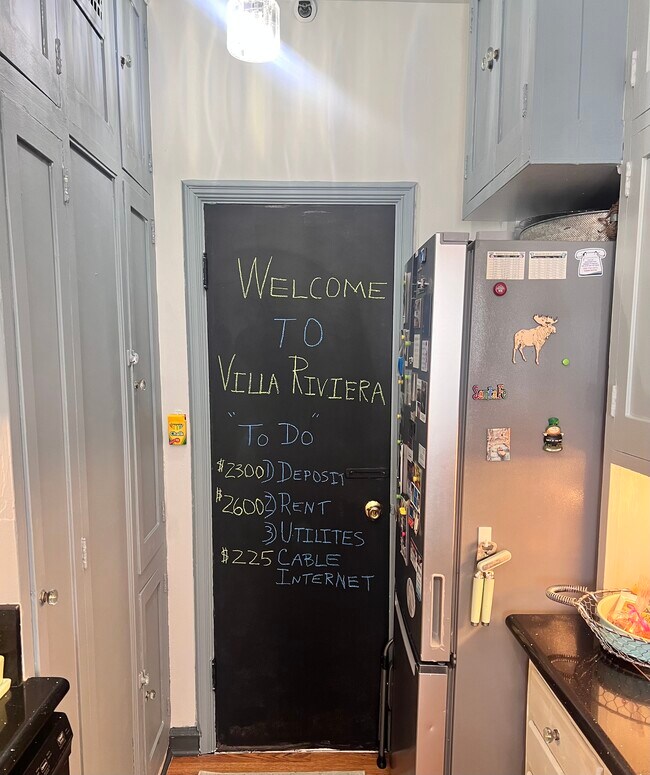 WELCOME
TO
VILLA RIVIERA
"TO DO"
$2300 1) DEPOSIT
$2600 2) RENT
3) UTILITES
$225 CABLE
INTERNET
Santa Fe